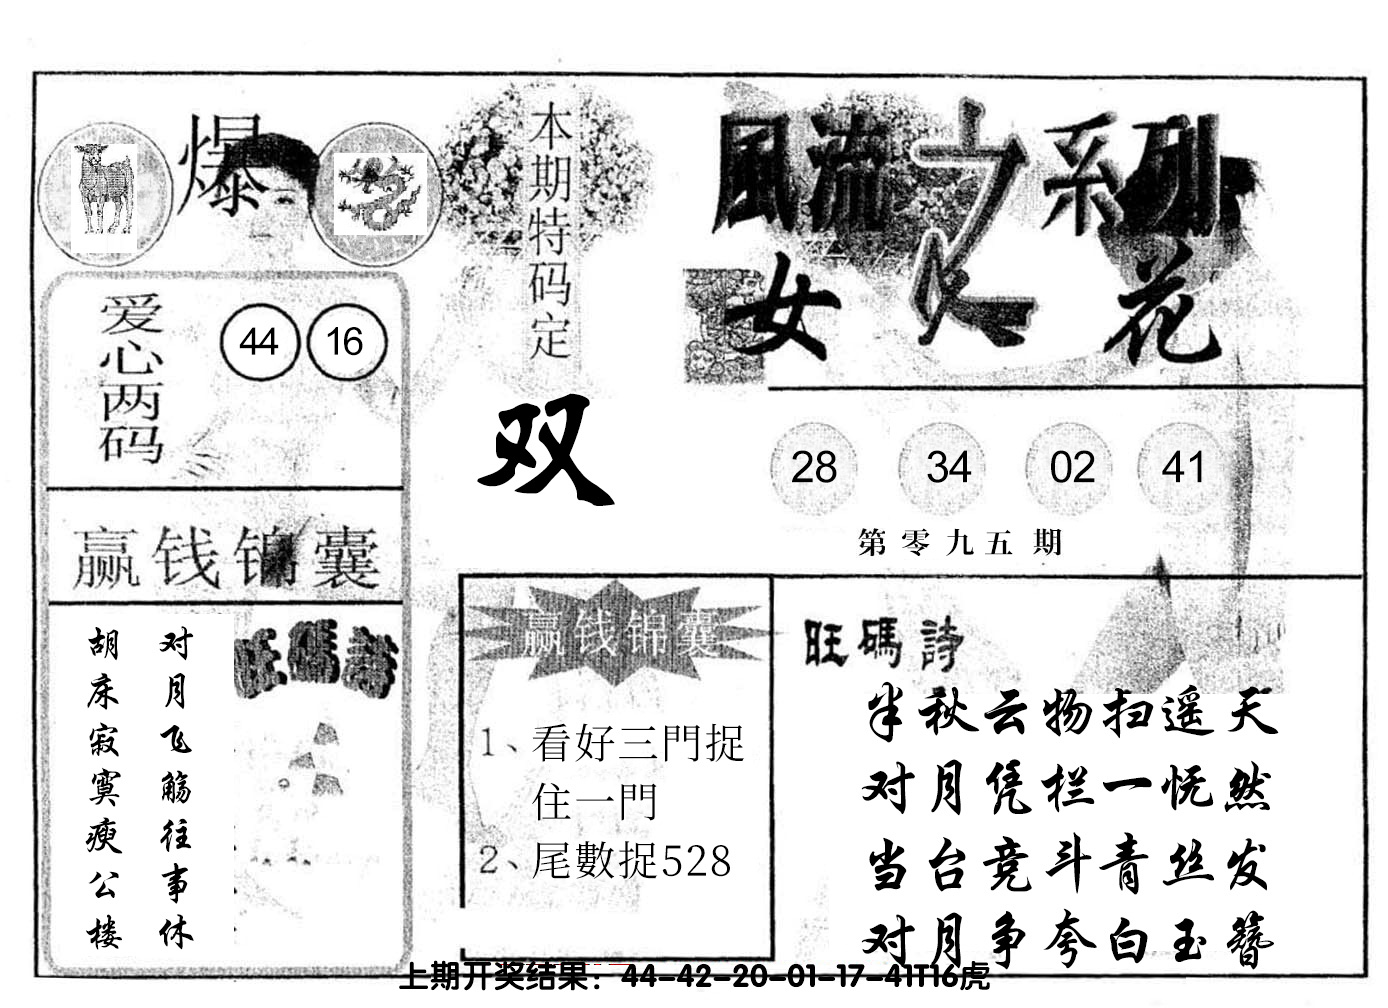 爆
本期特码定
双
風流之系列
女人花
爱心两码
44 16
28 34 02 41
第零九五期
赢钱锦囊
旺碼詩
对月飞觞往事休
胡床寂寞瘐公楼
赢钱锦囊
1、看好三門捉
住一門
2、尾數捉528
旺碼詩
半秋云物扫遥天
对月凭栏一恍然
当台竞斗青丝发
对月争夸白玉簪
上期开奖结果：44-42-20-01-17-41T16虎